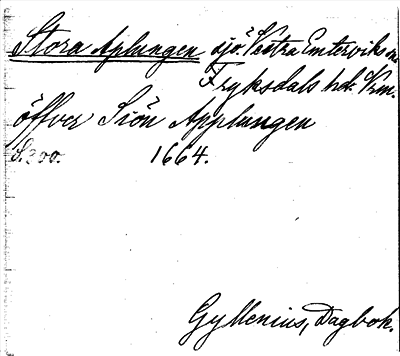 Stora Aplungen sjö. Västra Emterviks sn.
Fryksdals hd. Vrm.
öffver Siön Applungen
S. 300. 1664.
Gyllenius, Dagbok.